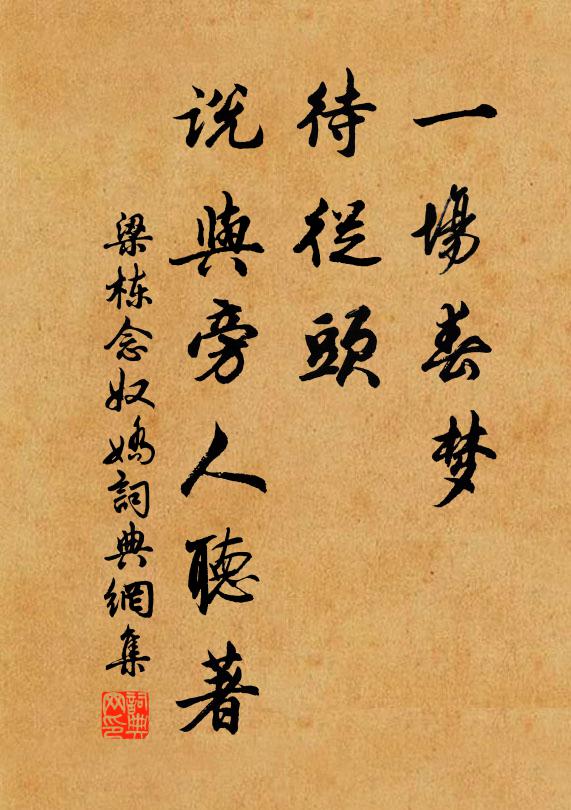 一場春梦
待從頭
说與旁人聽著
梁栋念奴嬌詞典網集
詞典网印